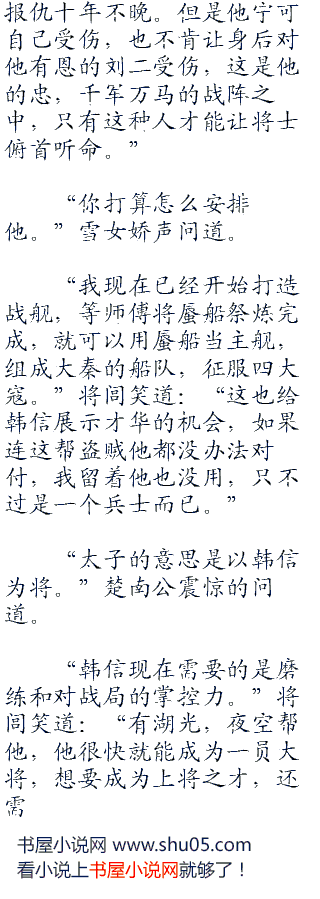 报仇十年不晚。但是他宁可
自己受伤，也不肯让身后对
他有恩的刘二受伤，这是他
的忠，千军万马的战阵之
中，只有这种人才能让将士
俯首听命。”
“你打算怎么安排
他。”雪女娇声问道。
“我现在已经开始打造
战舰，等师傅将蜃船祭炼完
成，就可以用蜃船当主舰，
组成大秦的船队，征服四大
寇。”将闾笑道：“这也给
韩信展示才华的机会，如果
连这帮盗贼他都没办法对
付，我留着他也没用，只不
过是一个兵士而已。”
“太子的意思是以韩信
为将。”楚南公震惊的问
道。
“韩信现在需要的是磨
练和对战局的掌控力。”将
闾笑道：“有湖光，夜空帮
他，他很快就能成为一员大
将，想要成为上将之才，还
需
书屋小说网 www.shu05.com
看小说上书屋小说网就够了！